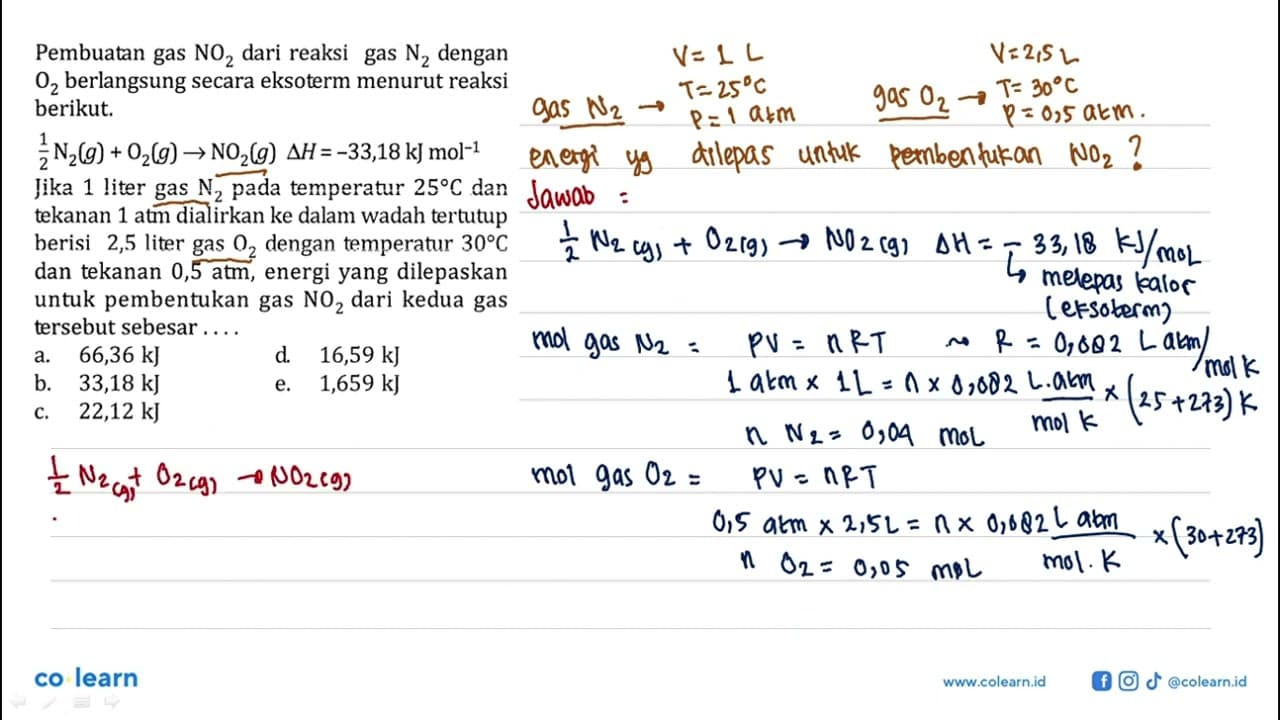 Pembuatan gas NO₂ dari reaksi gas N₂ dengan
O₂ berlangsung secara eksoterm menurut reaksi
berikut.
½N₂(g) + O₂(g) → NO₂(g) ΔH = –33,18 kJ mol⁻¹
Jika 1 liter gas N₂ pada temperatur 25°C dan
tekanan 1 atm dialirkan ke dalam wadah tertutup
berisi 2,5 liter gas O₂ dengan temperatur 30°C
dan tekanan 0,5 atm, energi yang dilepaskan
untuk pembentukan gas NO₂ dari kedua gas
tersebut sebesar . . . .
a. 66,36 kJ d. 16,59 kJ
b. 33,18 kJ e. 1,659 kJ
c. 22,12 kJ
½ N₂(g) + O₂(g) → NO₂(g)
V = 1 L
gas N₂ → T = 25°C
P = 1 atm
V = 2,5 L
gas O₂ → T = 30°C
P = 0,5 atm.
energi yg dilepas untuk pembentukan NO₂ ?
Jawab :
½ N₂(g) + O₂(g) → NO₂(g) ΔH = – 33,18 kJ/mol
↳ melepas kalor
(eksoterm)
mol gas N₂ = PV = nRT ~> R = 0,082 L atm/mol K
1 atm × 1 L = n × 0,082 L.atm/mol K × (25+273) K
n N₂ = 0,04 mol
mol gas O₂ = PV = nRT
0,5 atm × 2,5 L = n × 0,082 L atm/mol. K × (30+273)
n O₂ = 0,05 mol
co learn
www.colearn.id
@colearn.id